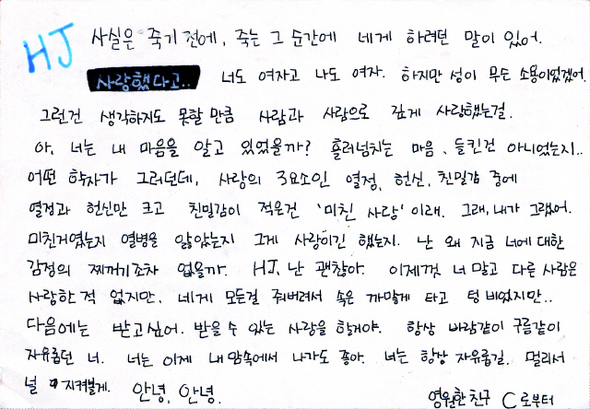 HJ 사실은 죽기 전에, 죽는 그 순간에 네게 하려던 말이 있어.
사랑했다고.. 너도 여자고 나도 여자. 하지만 성이 무슨 소용이었겠어.
그런건 생각하지도 못할 만큼 사람과 사람으로 깊게 사랑했는걸.
아, 너는 내 마음을 알고 있었을까? 흘러넘치는 마음, 들킨건 아니었는지..
어떤 학자가 그러던데, 사랑의 3요소인 열정, 헌신, 친밀감 중에
열정과 헌신만 크고 친밀감이 적은건 '미친 사랑' 이래. 그래, 내가 그랬어.
미친거였는지 열병을 앓았는지 그게 사랑이긴 했는지. 난 왜 지금 너에 대한
감정의 찌꺼기조차 없을까. HJ, 난 괜찮아. 이제껏 너 말고 다른 사람은
사랑한 적 없지만, 네게 모든걸 줘버려서 속은 까맣게 타고 텅 비었지만..
다음에는 받고싶어. 받을 수 있는 사랑을 할거야. 항상 바람같이 구름같이
자유롭던 너. 너는 이제 내 맘속에서 나가도 좋아. 너는 항상 자유롭길. 멀리서
널 지켜볼게. 안녕, 안녕.
영원한 친구 C로부터